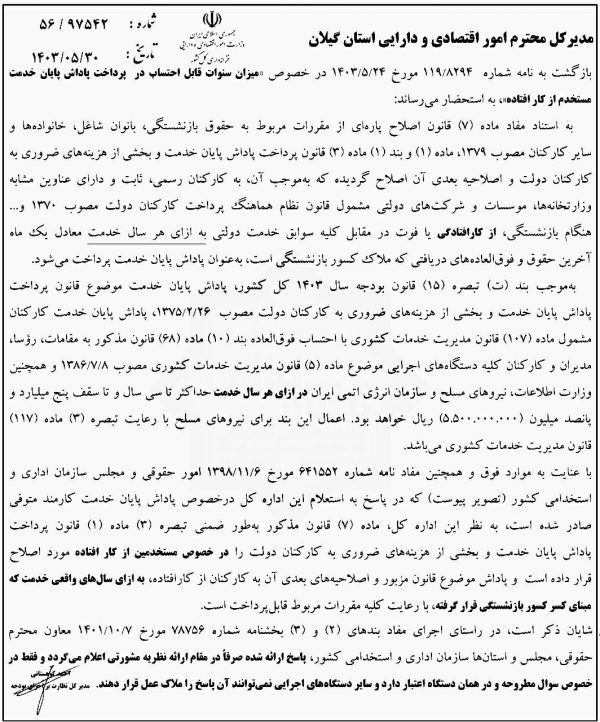 شماره : ۵۶ / ۹۷۵۴۲
تاریخ : ۱۴۰۳/۰۵/۳۰
جمهوری اسلامی ایران
وزارت امور اقتصادی و دارایی
خزانه‌داری کل کشور
مدیرکل محترم امور اقتصادی و دارایی استان گیلان
بازگشت به نامه شماره ۱۱۹/۸۲۹۴ مورخ ۱۴۰۳/۵/۲۴ در خصوص «میزان سنوات قابل احتساب در پرداخت پاداش پایان خدمت
مستخدم از کار افتاده»، به استحضار می‌رساند:
به استناد مفاد ماده (۷) قانون اصلاح پاره‌ای از مقررات مربوط به حقوق بازنشستگی، بانوان شاغل، خانواده‌ها و
سایر کارکنان مصوب ۱۳۷۹، ماده (۱) و بند (۱) ماده (۳) قانون پرداخت پاداش پایان خدمت و بخشی از هزینه‌های ضروری به
کارکنان دولت و اصلاحیه بعدی آن اصلاح گردیده که به‌موجب آن، به کارکنان رسمی، ثابت و دارای عناوین مشابه
وزارتخانه‌ها، موسسات و شرکت‌های دولتی مشمول قانون نظام هماهنگ پرداخت کارکنان دولت مصوب ۱۳۷۰ و...
هنگام بازنشستگی، از کارافتادگی یا فوت در مقابل کلیه سوابق خدمت دولتی به ازای هر سال خدمت معادل یک ماه
آخرین حقوق و فوق‌العاده‌های دریافتی که ملاک کسور بازنشستگی است، به‌عنوان پاداش پایان خدمت پرداخت می‌شود.
به‌موجب بند (ت) تبصره (۱۵) قانون بودجه سال ۱۴۰۳ کل کشور، پاداش پایان خدمت موضوع قانون پرداخت
پاداش پایان خدمت و بخشی از هزینه‌های ضروری به کارکنان دولت مصوب ۱۳۷۵/۲/۲۶، پاداش پایان خدمت کارکنان
مشمول ماده (۱۰۷) قانون مدیریت خدمات کشوری با احتساب فوق‌العاده بند (۱۰) ماده (۶۸) قانون مذکور به مقامات، رؤسا،
مدیران و کارکنان کلیه دستگاه‌های اجرایی موضوع ماده (۵) قانون مدیریت خدمات کشوری مصوب ۱۳۸۶/۷/۸ و همچنین
وزارت اطلاعات، نیروهای مسلح و سازمان انرژی اتمی ایران در ازای هر سال خدمت حداکثر تا سی سال و تا سقف پنج میلیارد و
پانصد میلیون (۵.۵۰۰.۰۰۰.۰۰۰) ریال خواهد بود. اعمال این بند برای نیروهای مسلح با رعایت تبصره (۳) ماده (۱۱۷)
قانون مدیریت خدمات کشوری می‌باشد.
با عنایت به موارد فوق و همچنین مفاد نامه شماره ۶۴۱۵۵۲ مورخ ۱۳۹۸/۱۱/۶ امور حقوقی و مجلس سازمان اداری و
استخدامی کشور (تصویر پیوست) که در پاسخ به استعلام این اداره کل درخصوص پاداش پایان خدمت کارمند متوفی
صادر شده است، به نظر این اداره کل، ماده (۷) قانون مذکور به‌طور ضمنی تبصره (۳) ماده (۱) قانون پرداخت
پاداش پایان خدمت و بخشی از هزینه‌های ضروری به کارکنان دولت را در خصوص مستخدمین از کار افتاده مورد اصلاح
قرار داده است و پاداش موضوع قانون مزبور و اصلاحیه‌های بعدی آن به کارکنان از کارافتاده، به ازای سال‌های واقعی خدمت که
مبنای کسر کسور بازنشستگی قرار گرفته، با رعایت کلیه مقررات مربوط قابل‌پرداخت است.
شایان ذکر است، در راستای اجرای مفاد بندهای (۲) و (۳) بخشنامه شماره ۷۸۷۵۶ مورخ ۱۴۰۱/۱۰/۷ معاون محترم
حقوقی، مجلس و استان‌ها سازمان اداری و استخدامی کشور، پاسخ ارائه شده صرفاً در مقام ارائه نظریه مشورتی اعلام می‌گردد و فقط در
خصوص سوال مطروحه و در همان دستگاه اعتبار دارد و سایر دستگاه‌های اجرایی نمی‌توانند آن پاسخ را ملاک عمل قرار دهند.
مدیر کل نظارت بر اجرای بودجه